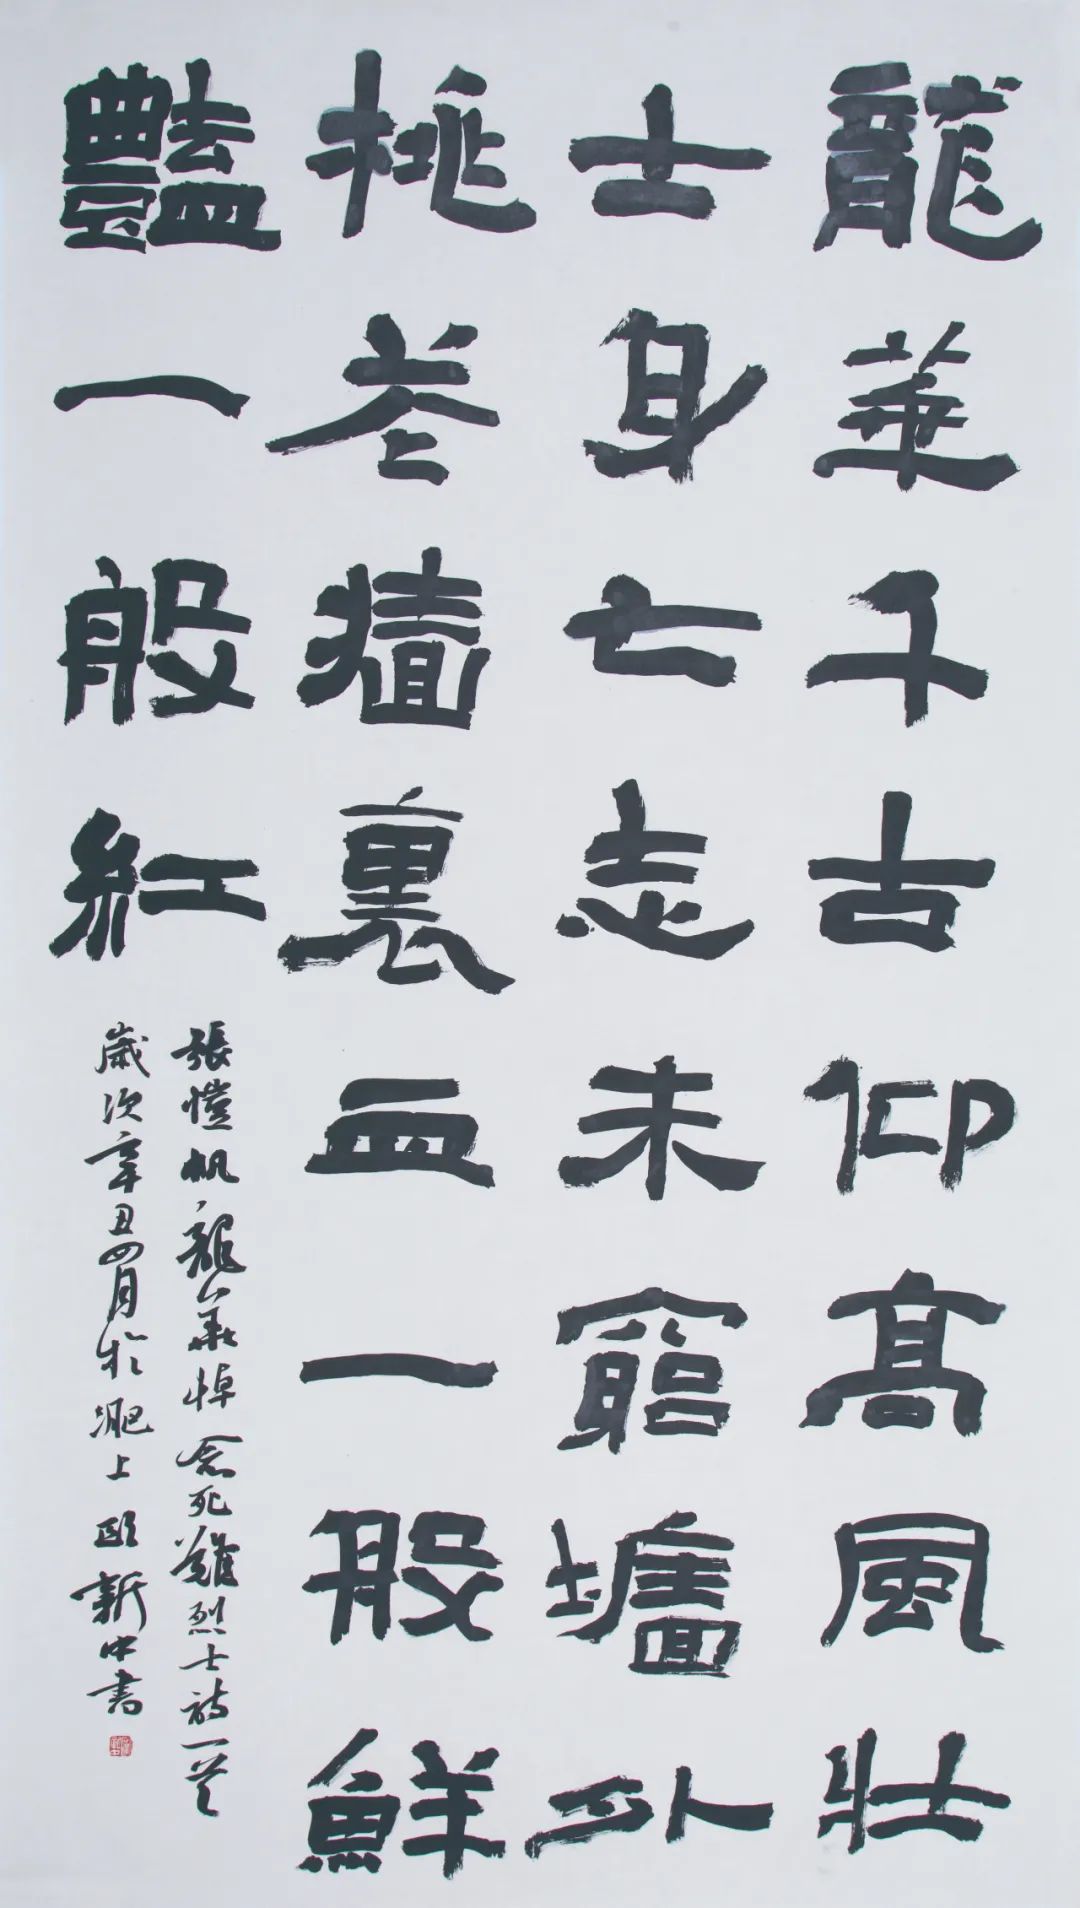 龍華千古仰髙風壯
士身亡志未窮墻外
桃花牆裏血一般鮮
豔一般紅
張愷帆龍華悼念死難烈士詩一首
歲次辛丑四月於淝上 歐新中書